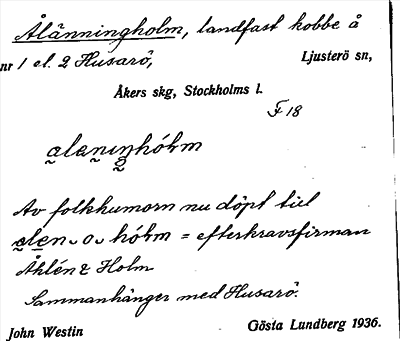 Ålänningholm, landfast kobbe å
nr 1 el. 2 Husarö, Ljusterö sn,
Åkers skg, Stockholms l.
F 18
alenıŋhólm
Av folkhumorn nu döpt till
alen o hólm = efterkravsfirman
Åhlén & Holm
Sammanhänger med Husarö.
John Westin Gösta Lundberg 1936.